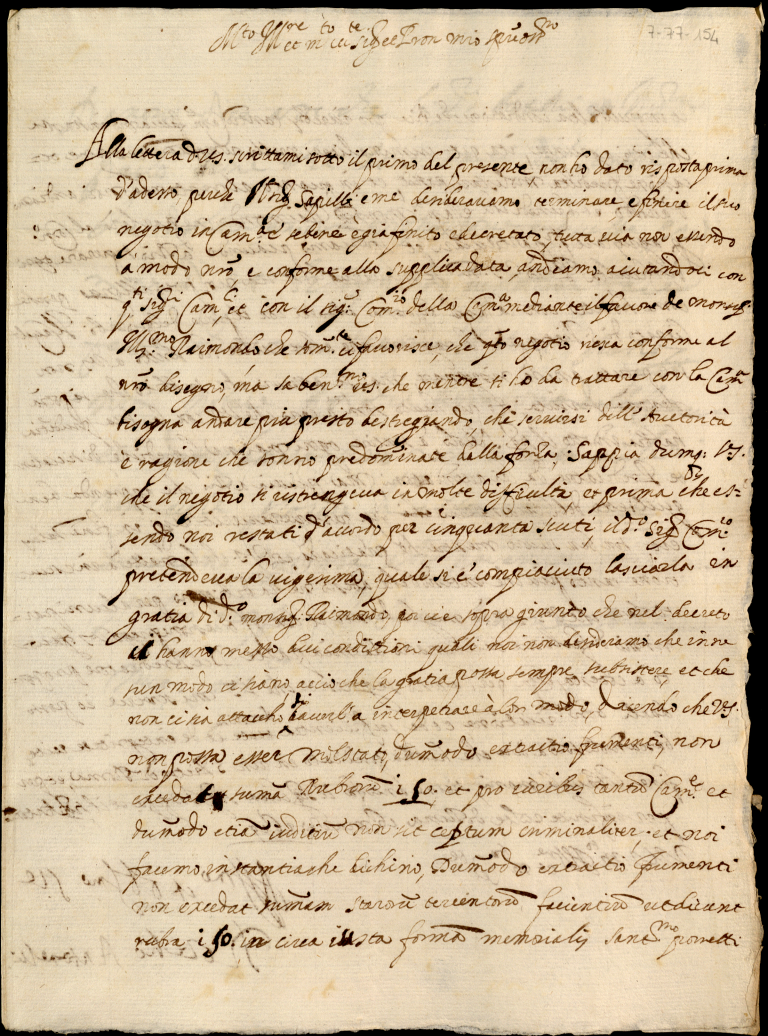 7-77-154
M.to M.re et m.to
Alla lettera di V.S. scrittami sotto il primo del presente, non ho dato risposta prima
d'adesso perche Mons.r Sapilli e me desideravamo terminare, e finire il suo
negotio in Cam.a e sebene è gia finito e decretato, tutta via non essendo
à modo nro e conforme alla supplica data, andiamo aiutandoci con
q.ti Sig.ri Cam.li et con il sig.r Com.rio della Cam.a mediante il favore de Monsig.r
Ill.mo Raimondo che som.te ci favorisce, che q.to negotio venga conforme al
nro bisogno, ma sa ben.mo V.S. che mentre si ha da trattare con la Cam.a
bisogna andare più presto destreggiando, che servirsi dell'Auttorità
e ragione che sonno predominate della forza. Sappia dunq; V.S.
che il negotio si ristringeva in molte difficultà, et prima che es-
sendo noi restati d'accordo per cinquanta scuti, il d.o Sig.r Com.rio
pretendeva la vigesima, quale si e compiaciuto lasciarla in
gratia di d.o monsig.r Raimondo, poi ci e sopra giunto che nel decreto
ci hanno messo due condittioni quali noi non desideriamo che in ne
sun modo ci siano accioche la gratia possa sempre subsistere, et che
non ci sia attaccho da interpetrare à lor modo, dicendo che V.S.
non possa esser molestato, dumodo extractio frumenti non
excedat sumã Rubiorũ 150. et pro iuribus tantũ Cam.e et
dumodo etiã iuditiũ non sit ceptum criminaliter, et noi
facemo instantia che dichino, Dumodo extractio frumenti
non excedat sumam starorũ tercentorũ facientiũ ut dicunt
rubra 150. in circa iuxta formã memorialis sanct.mo porrecti